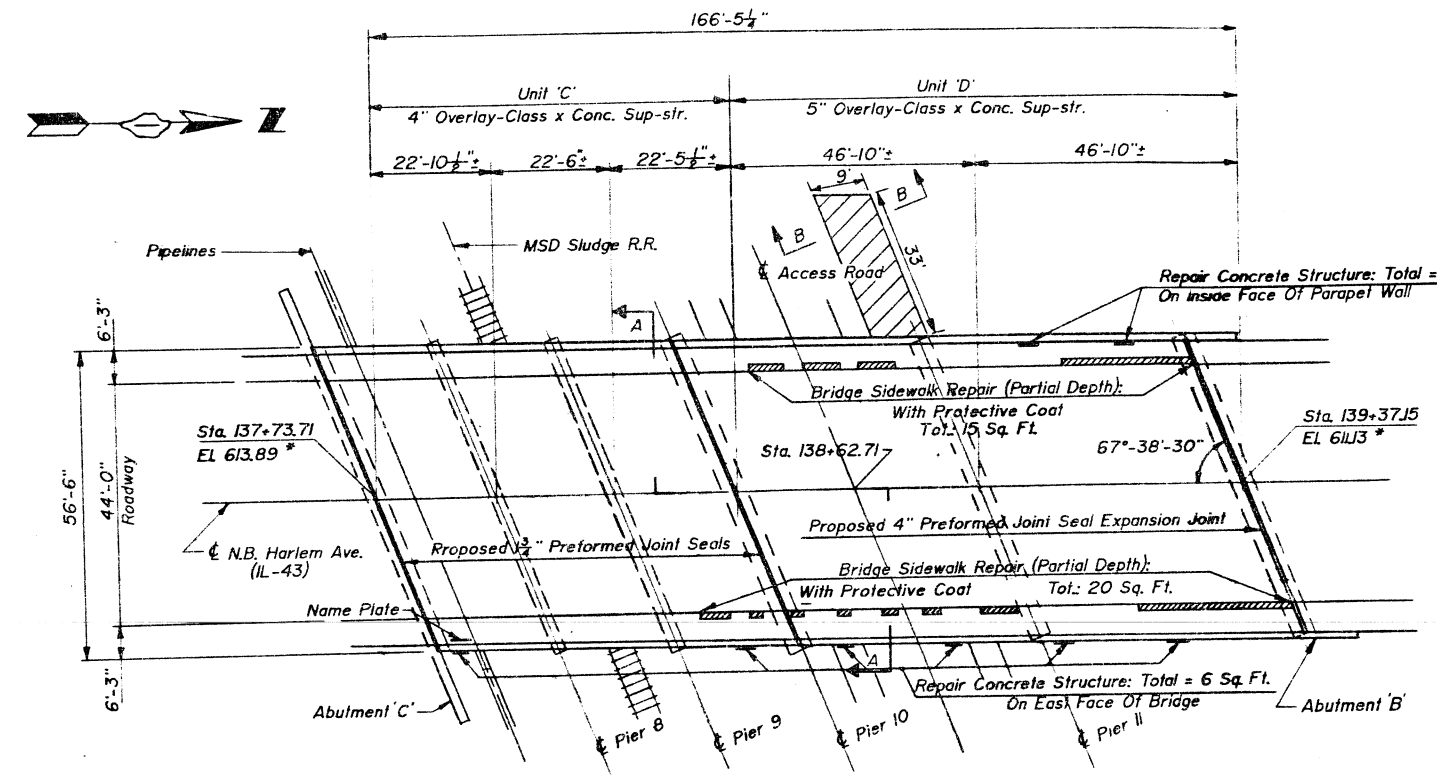 166'-5 1/4"
Unit 'C'
4" Overlay-Class x Conc. Sup-str.
Unit 'D'
5" Overlay-Class x Conc. Sup-str.
22'-10 1/2"±
22'-6"±
22'-5 1/2"±
46'-10"±
46'-10"±
9'
B
B
33'
Pipelines
MSD Sludge R.R.
℄ Access Road
Repair Concrete Structure: Total =
On Inside Face Of Parapet Wall
6'-3"
A
Bridge Sidewalk Repair (Partial Depth):
With Protective Coat
Tot.: 15 Sq. Ft.
Sta. 137+73.71
El. 613.89 *
Sta. 138+62.71
67°-38'-30"
Sta. 139+37.15
El. 611.13 *
56'-6"
44'-0"
Roadway
Proposed 4" Preformed Joint Seal Expansion Joint
℄ N.B. Harlem Ave.
(IL-43)
Rroposed 1 3/4" Preformed Joint Seals
Bridge Sidewalk Repair (Partial Depth):
With Protective Coat Tot.: 20 Sq. Ft.
Name Plate
6'-3"
A
Repair Concrete Structure: Total = 6 Sq. Ft.
On East Face Of Bridge
Abutment 'C'
Abutment 'B'
℄ Pier 8
℄ Pier 9
℄ Pier 10
℄ Pier 11